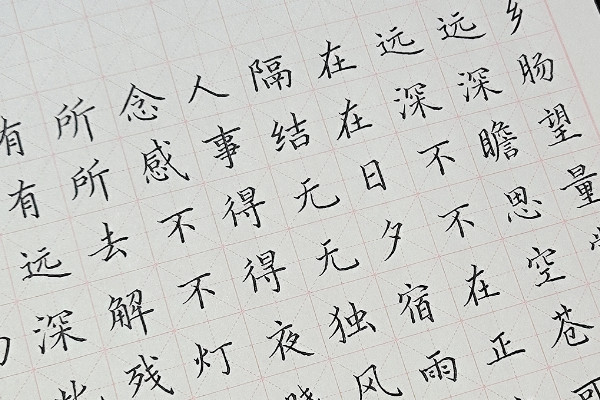 有所念人隔在远远乡
有所感事结在深深肠
远去不得无日不瞻望
深解不得无夕不思量
残灯夜独宿在空
风雨正苍